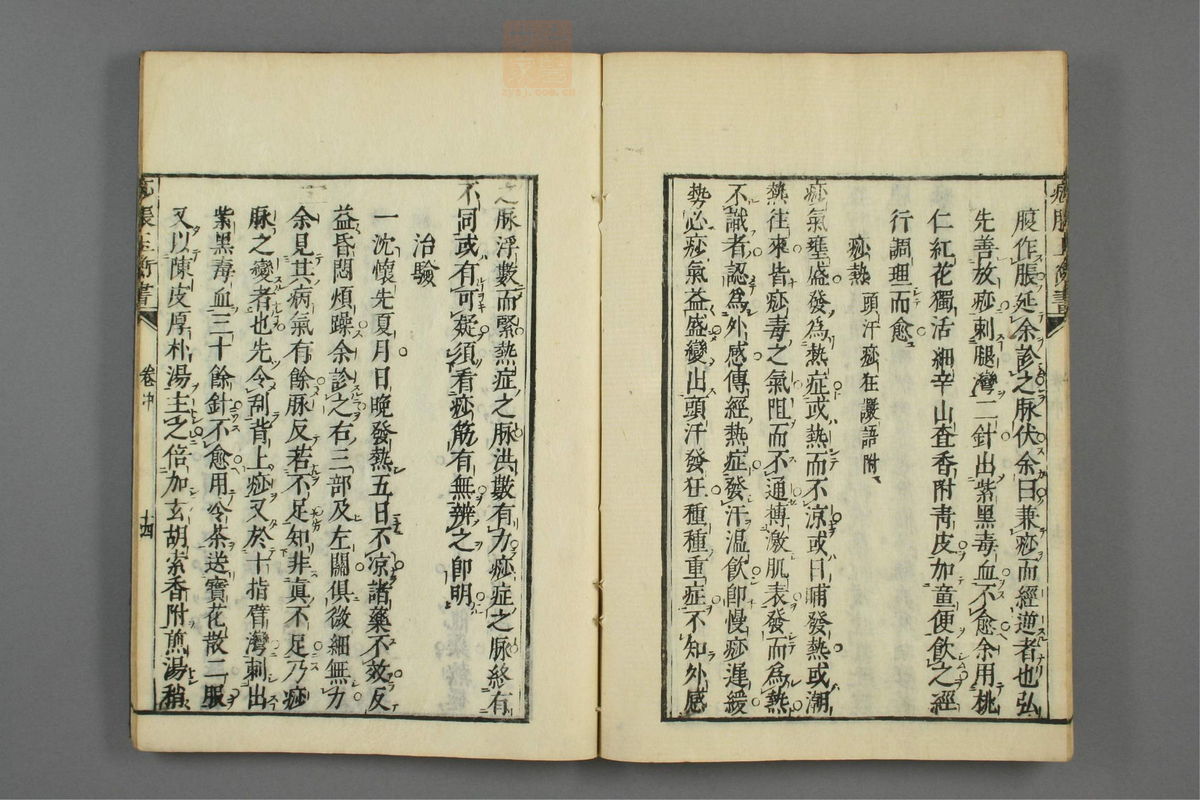 痧脹玉衡書
腹作脹延余診之脉伏余曰兼痧而經逆者也弘
先善放痧刺腿灣二針出紫黑毒血不愈余用桃
仁紅花獨活細辛山査香附靑皮加童便飲之經
行調理而愈
痧熱 頭汗痧狂譫語附
痧氣壅盛發為熱症或熱而不凉或日晡發熱或潮
熱往來皆痧毒之氣阻而不通搏激肌表發而為熱
不識者認為外感傳經熱症發汗温飲卽慢痧遲緩
勢必痧氣益盛變出頭汗發狂種種重症不知外感
之脉浮數而緊熱症之脉洪數有力痧症之脉終有
不同或有可疑須看痧筋有無辨之卽明
治驗
一沈懷先夏月日晚發熱五日不凉諸藥不效反
益昏悶煩躁余診之右三部及左關俱微細無力
余見其病氣有餘脉反若不足知非眞不足乃痧
脉之變者也先令刮背上痧又於十指臂灣刺出
紫黑毒血三十餘針不愈用冷茶送寶花散二服
又以陳皮厚朴湯主之倍加玄胡索香附煎湯稍
痧脹玉衡書
卷中
十四